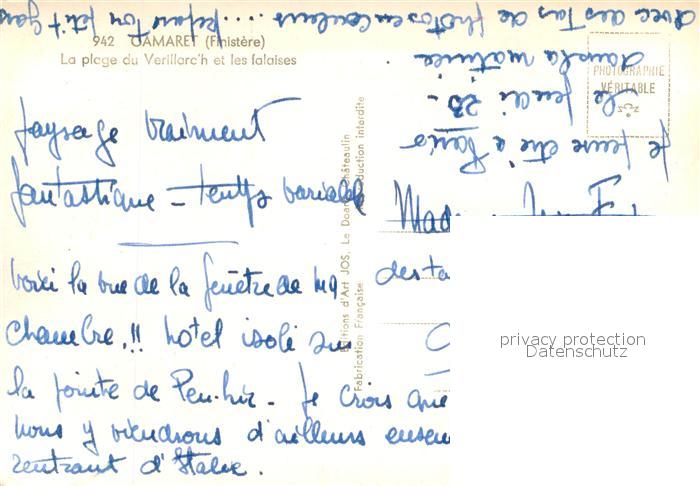 942 CAMARET (Finistère)
La plage du Verillarc'h et les falaises
PHOTOGRAPHIE
VÉRITABLE
JOS
Editions d'Art JOS. Le Doaré Châteaulin
Reproduction interdite
Fabrication Française.
paysage vraiment
fantastique - temps variable
voici la vue de la fenêtre de ma
chambre.!! hotel isolé sur
la pointe de Pen-hir - Je crois que
nous y viendrons d'ailleurs ensem
rentrant d'Italie.
Je pense être à Paris
le jeudi 28 -
dans la matinée
avec des tas de photos en couleurs
privacy protection
Datenschutz